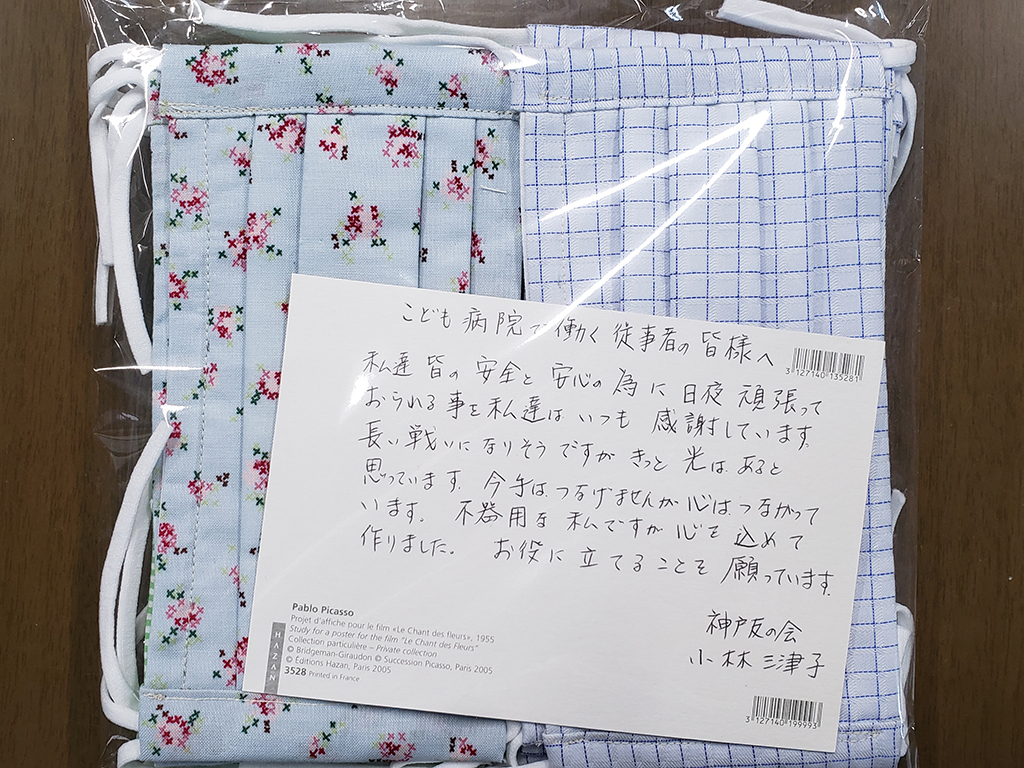 こども病院で働く従事者の皆様へ
3 127140 135281
私達皆の安全と安心の為に日夜頑張って
おられる事を私達はいつも感謝しています。
長い戦いになりそうですがきっと光はあると
思っています。今手はつなげませんが心はつながって
います。不器用な私ですが心を込めて
作りました。お役に立てることを願っています。
神戸友の会
小林三津子
Pablo Picasso
Projet d'affiche pour le film «Le Chant des fleurs», 1955
Study for a poster for the film "Le Chant des Fleurs"
Collection particulière – Private collection
© Bridgeman-Giraudon © Succession Picasso, Paris 2005
© Éditions Hazan, Paris 2005
3528 Printed in France
HAZAN
3 127140 199993